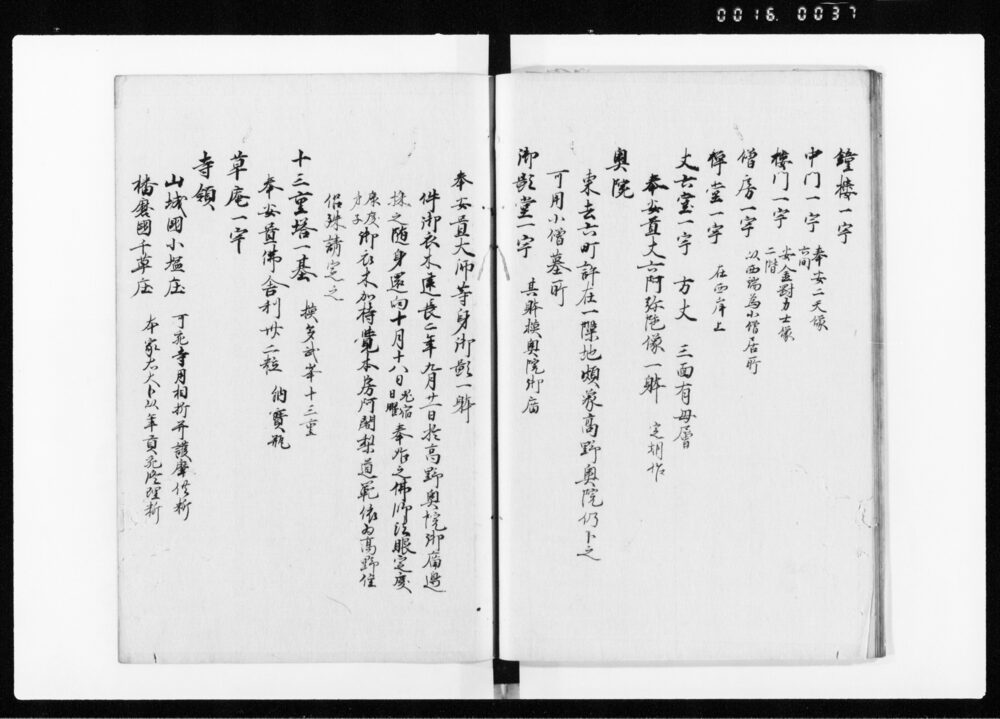 0016.0037
鐘樓一宇
中門一宇 六間 奉安二天像
樓門一宇 二階 安金剛力士像
僧房一宇 以西端為小僧居所
禪堂一宇 在西岸上
丈六堂一宇 方丈 三面有母屋
奉安置丈六阿弥陀像一躰 定朝作
奥院
東去六町許在一隙地頗象高野奥院仍卜之
可用小僧墓所
御影堂一宇 其躰摸奥院御廟
奉安置大師等身御影一躰
件御衣木建長二年九月廿一日於高野奥院御廟邊
採之随身還向十月十八日 鬼宿日曜 奉作之佛師法眼定慶
康慶才子 御衣木加持覺本房阿闍梨道範依為高野住
侶殊請定之
十三重塔一基 摸多武峯十三重
奉安置佛舎利卅二粒 納寶瓶
草庵一宇
寺領
山城國小塩庄 可充寺用相折并護摩供析
播磨國千草庄 本家右大卜以年貢充修理析